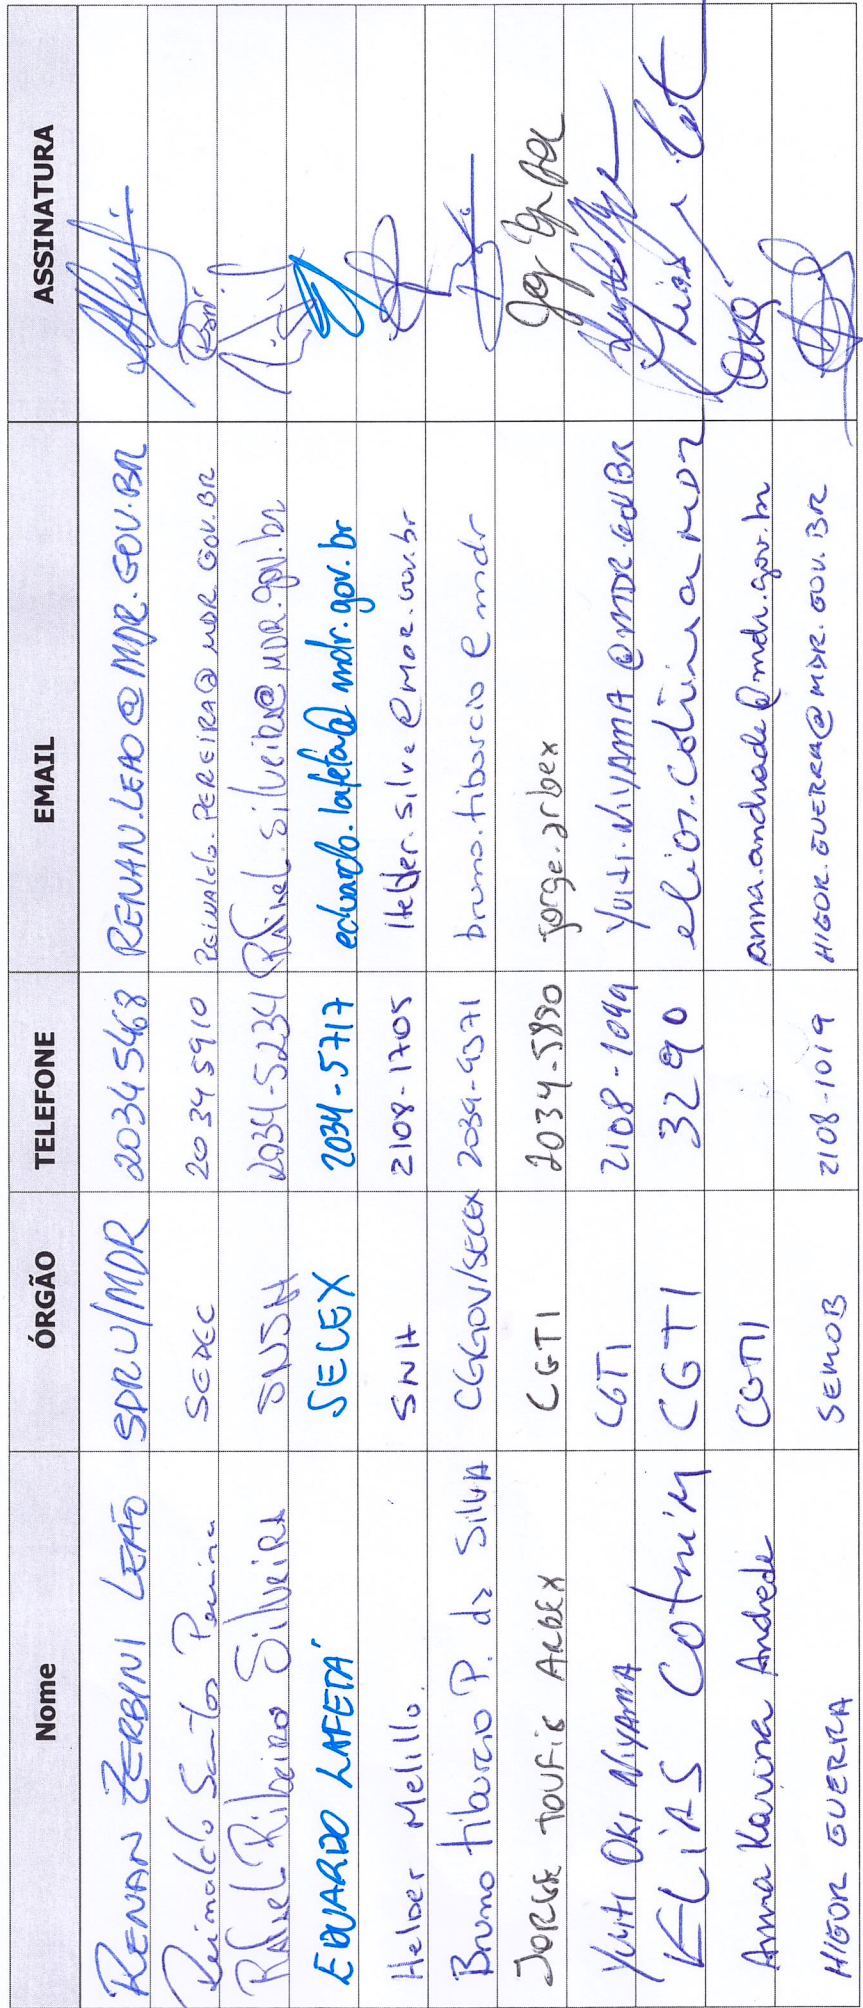 Nome ÓRGÃO TELEFONE EMAIL ASSINATURA
RENAN ZERBINI LEÃO SDRU/MDR 2034 5468 RENAN.LEAO@MDR.GOV.BR
Reinaldo Santos Pereira SEDEC 2034 5910 REINALDO.PEREIRA@MDR.GOV.BR
Rafael Ribeiro Silveira SNSH 2034-5234 Rafael.silveira@MDR.gov.br
EDUARDO LAFETÁ SECEX 2034-5717 eduardo.lafeta@mdr.gov.br
Helder Melillo. SNH 2108-1705 Helder.silva@MDR.gov.br
Bruno Tiburcio P. da Silva CGGOV/SECEX 2034-4371 bruno.tiburcio@mdr
JORGE TOUFIC ARBEX CGTI 2034-5830 jorge.arbex
YUITI OKI NIYAMA CGTI 2108-1049 YUITI.NIYAMA@MDR.GOV.BR
ELIAS Cotrim CGTI 3290
Anna Karina Andrade CGTI anna.andrade@mdr.gov.br
HIGOR GUERRA SEMOB 2108-1019 HIGOR.GUERRA@MDR.GOV.BR